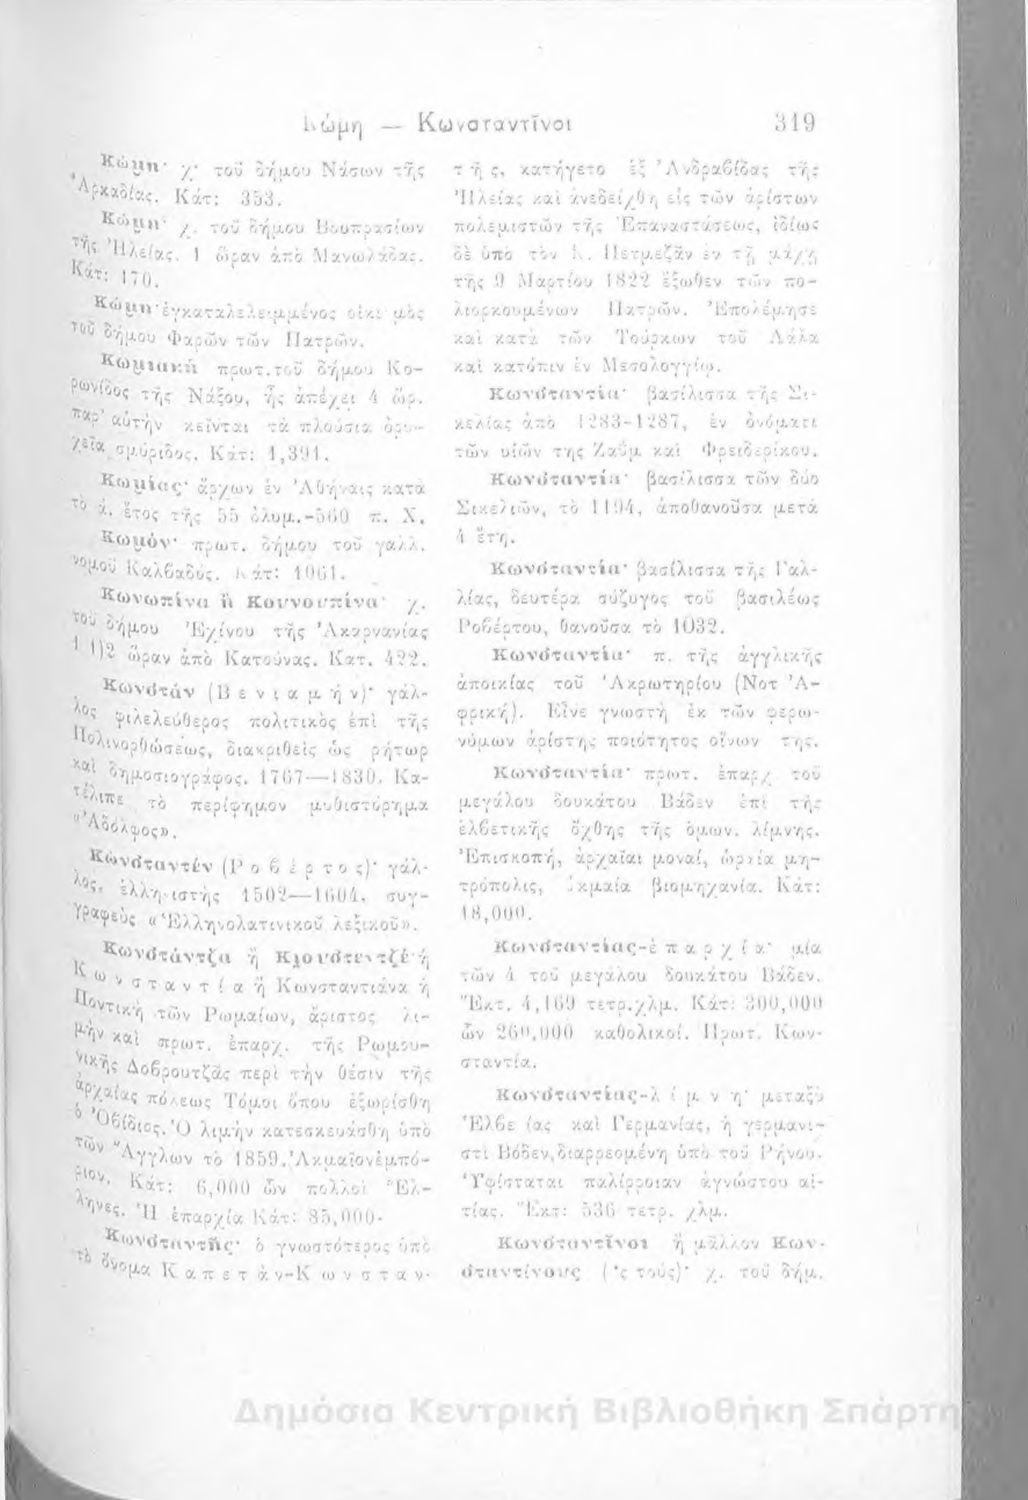 Κώμη — Κωνσταντῖνοι 319
Κώμη· χ· τοῦ δήμου Νάσων τῆς
Ἀρκαδίας. Κάτ: 353.
Κώμη· χ. τοῦ δήμου Βουπρασίων
τῆς Ἠλείας. 1 ὥραν ἀπὸ Μανωλάδας.
Κάτ: 170.
Κώμη· ἐγκαταλελειμμένος οἰκισμὸς
τοῦ δήμου Φαρῶν τῶν Πατρῶν.
Κωμιακὴ πρωτ. τοῦ δήμου Κο-
ρωνίδος τῆς Νάξου, ἧς ἀπέχει 4 ὥρ.
παρ' αὐτὴν κεῖνται τὰ πλούσια ὀρυ-
χεῖα σμύριδος. Κάτ: 1,391.
Κωμίας· ἄρχων ἐν Ἀθήναις κατὰ
τὸ ά. ἔτος τῆς 55 ὀλυμ.-560 π. Χ.
Κωμόν· πρωτ. δήμου τοῦ γαλλ.
νομοῦ Καλβαδός. Κάτ: 1061.
Κωνωπίνα ἢ Κουνουπίνα· χ.
τοῦ δήμου Ἐχίνου τῆς Ἀκαρνανίας
1 1)2 ὥραν ἀπὸ Κατούνας. Κατ. 422.
Κωνστάν (Βενιαμήν)· γάλ-
λος φιλελεύθερος πολιτικὸς ἐπὶ τῆς
Παλινορθώσεως, διακριθεὶς ὡς ρήτωρ
καὶ δημοσιογράφος. 1767—1830. Κα-
τέλιπε τὸ περίφημον μυθιστόρημα
«Ἀδόλφος».
Κωνσταντέν (Ροβέρτος)· γάλ-
λος, ἑλληνιστὴς 1502—1604. συγ-
γραφεὺς «Ἑλληνολατινικοῦ λεξικοῦ».
Κωνστάντζα ἢ Κιουστεντζὲ ἢ
Κωνσταντία ἢ Κωνσταντιάνα ἢ
Ποντικὴ τῶν Ρωμαίων, ἄριστος λι-
μὴν καὶ πρωτ. ἐπαρχ. τῆς Ρωμου-
νικῆς Δοβρουτζᾶς περὶ τὴν θέσιν τῆς
ἀρχαίας πόλεως Τόμοι ὅπου ἐξωρίσθη
ὁ Ὀβίδιος. Ὁ λιμὴν κατεσκευάσθη ὑπὸ
τῶν Ἄγγλων τὸ 1859. Ἀκμαῖον ἐμπό-
ριον. Κάτ: 6,000 ὧν πολλοὶ Ἕλ-
ληνες. Ἡ ἐπαρχία Κάτ: 85,000·
Κωνσταντῆς· ὁ γνωστότερος ὑπὸ
τὸ ὄνομα Καπετάν-Κωνσταν-
τῆς, κατήγετο ἐξ Ἀνδραβίδας τῆς
Ἠλείας καὶ ἀνεδείχθη εἷς τῶν ἀρίστων
πολεμιστῶν τῆς Ἐπαναστάσεως, ἰδίως
δὲ ὑπὸ τὸν Κ. Πετμεζᾶν ἐν τῇ μάχῃ
τῆς 9 Μαρτίου 1822 ἔξωθεν τῶν πο-
λιορκουμένων Πατρῶν. Ἐπολέμησε
καὶ κατὰ τῶν Τούρκων τοῦ Λάλα
καὶ κατόπιν ἐν Μεσολογγίῳ.
Κωνσταντία· βασίλισσα τῆς Σι-
κελίας ἀπὸ 1283-1287, ἐν ὀνόματι
τῶν υἱῶν της Ζαΰμ καὶ Φρειδερίκου.
Κωνσταντία· βασίλισσα τῶν δύο
Σικελιῶν, τὸ 1194, ἀποθανοῦσα μετὰ
4 ἔτη.
Κωνσταντία· βασίλισσα τῆς Γαλ-
λίας, δευτέρα σύζυγος τοῦ βασιλέως
Ροβέρτου, θανοῦσα τὸ 1032.
Κωνσταντία· π. τῆς ἀγγλικῆς
ἀποικίας τοῦ Ἀκρωτηρίου (Νοτ Ἀ-
φρική). Εἶνε γνωστὴ ἐκ τῶν φερω-
νύμων ἀρίστης ποιότητος οἴνων της.
Κωνσταντία· πρωτ. ἐπαρχ τοῦ
μεγάλου δουκάτου Βάδεν ἐπὶ τῆς
ἑλβετικῆς ὄχθης τῆς ὁμων. λίμνης.
Ἐπισκοπή, ἀρχαῖαι μοναί, ὡραία μη-
τρόπολις, ἀκμαία βιομηχανία. Κάτ:
18,000.
Κωνσταντίας-ἐπαρχία· μία
τῶν 4 τοῦ μεγάλου δουκάτου Βάδεν.
Ἔκτ. 4,169 τετρ. χλμ. Κάτ: 300,000
ὧν 260,000 καθολικοί. Πρωτ. Κων-
σταντία.
Κωνσταντίας-λίμνη· μεταξὺ
Ἑλβετίας καὶ Γερμανίας, ἡ γερμανι-
στὶ Βόδεν, διαρρεομένη ὑπὸ τοῦ Ρήνου.
Ὑφίσταται παλίρροιαν ἀγνώστου αἰ-
τίας. Ἔκτ: 536 τετρ. χλμ.
Κωνσταντῖνοι ἢ μᾶλλον Κων-
σταντίνους (ʼς τοὺς)· χ. τοῦ δήμ.
Δημόσια Κεντρική Βιβλιοθήκη Σπάρτη